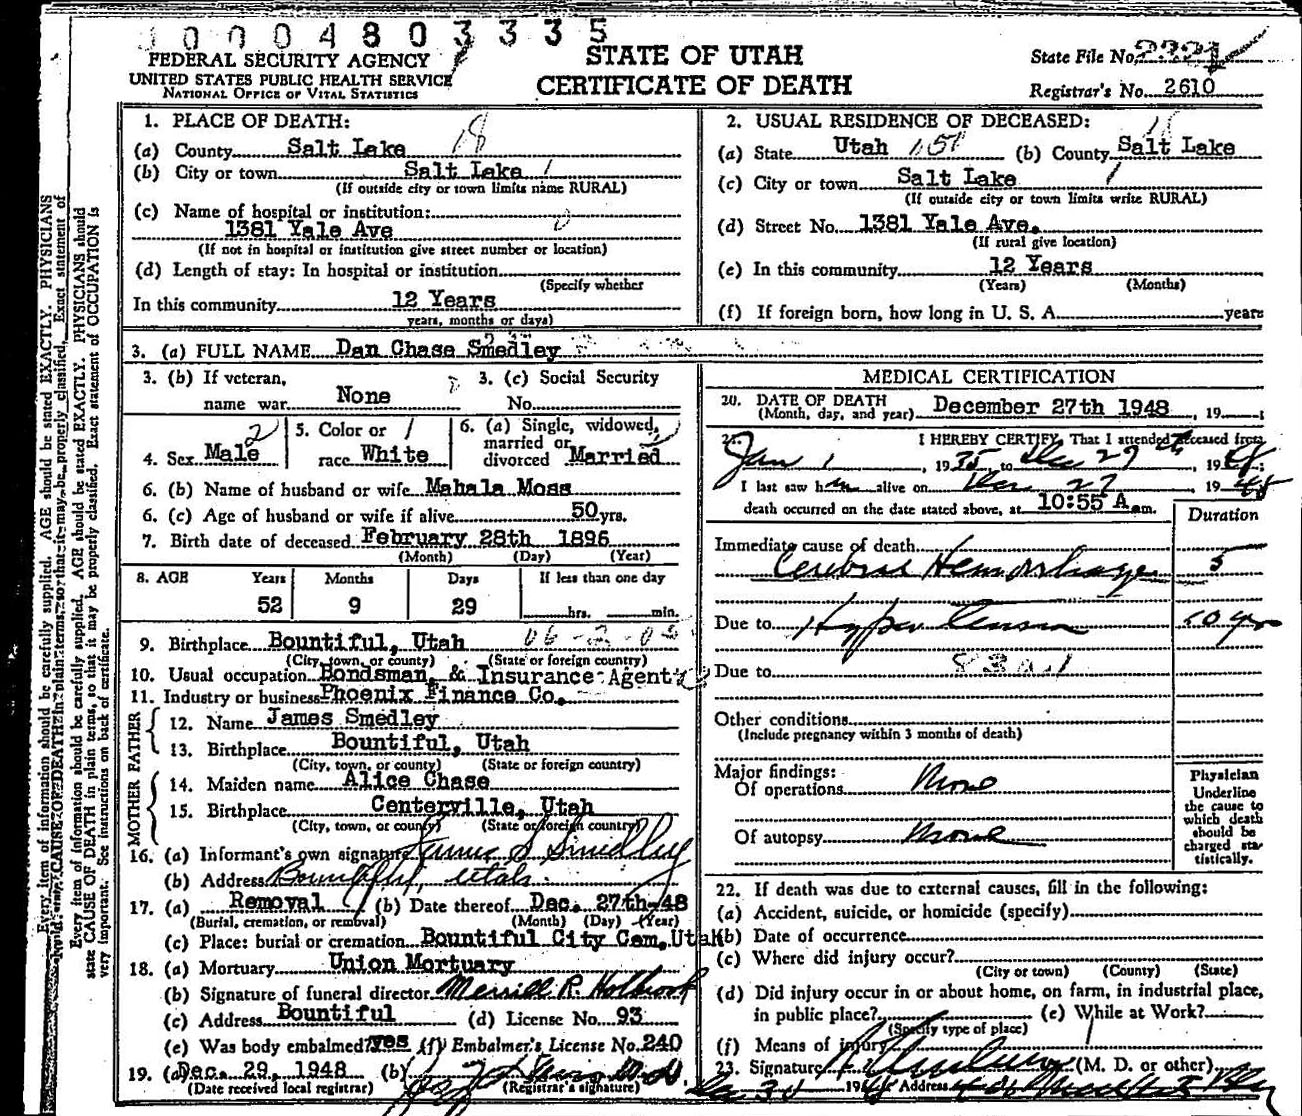 1000480 3335
FEDERAL SECURITY AGENCY
UNITED STATES PUBLIC HEALTH SERVICE
NATIONAL OFFICE OF VITAL STATISTICS
STATE OF UTAH
CERTIFICATE OF DEATH
State File No.
Registrar's No. 2610
1. PLACE OF DEATH:
(a) County Salt Lake 18
(b) City or town Salt Lake 1
(If outside city or town limits name RURAL)
(c) Name of hospital or institution:
1381 Yale Ave 0
(If not in hospital or institution give street number or location)
(d) Length of stay: In hospital or institution
(Specify whether
In this community 12 Years
years, months or days)
2. USUAL RESIDENCE OF DECEASED:
(a) State Utah (b) County Salt Lake
(c) City or town Salt Lake 1
(If outside city or town limits write RURAL)
(d) Street No. 1381 Yale Ave.
(If rural give location)
(e) In this community 12 Years
(Years) (Months)
(f) If foreign born, how long in U. S. A. years
3. (a) FULL NAME Dan Chase Smedley
3. (b) If veteran, name war None
3. (c) Social Security No.
4. Sex Male 2
5. Color or race White 1
6. (a) Single, widowed, married or divorced Married 2
6. (b) Name of husband or wife Mahala Moss
6. (c) Age of husband or wife if alive 50 yrs.
7. Birth date of deceased February 28th 1896
(Month) (Day) (Year)
8. AGE Years Months Days If less than one day
52 9 29 hrs. min.
9. Birthplace Bountiful, Utah
(City, town, or county) (State or foreign country)
10. Usual occupation Bondsman, & Insurance Agent
11. Industry or business Phoenix Finance Co.
FATHER
12. Name James Smedley
13. Birthplace Bountiful, Utah
(City, town, or county) (State or foreign country)
MOTHER
14. Maiden name Alice Chase
15. Birthplace Centerville, Utah
(City, town, or county) (State or foreign country)
16. (a) Informant's own signature James S Smedley
(b) Address Bountiful, Utah.
17. (a) Removal (b) Date thereof Dec. 27th-48
(Burial, cremation, or removal) (Month) (Day) (Year)
(c) Place: burial or cremation Bountiful City Cem, Utah
18. (a) Mortuary Union Mortuary
(b) Signature of funeral director Merrill R. Holbrook
(c) Address Bountiful (d) License No. 93
(e) Was body embalmed? yes (f) Embalmer's License No. 240
19. (a) Dec. 29, 1948 (b)
(Date received local registrar) (Registrar's signature)
MEDICAL CERTIFICATION
20. DATE OF DEATH
(Month, day, and year) December 27th 1948, 19
21. I HEREBY CERTIFY, That I attended deceased from
Jan 1, 1935, to Dec 27th 1948;
I last saw him alive on Dec 27 1948
death occurred on the date stated above, at 10:55 A.m.
Duration
Immediate cause of death
Cerebral Hemorrhage 5
Due to Hypertension 10 yrs
Due to
Other conditions
(Include pregnancy within 3 months of death)
Major findings:
Of operations None
Of autopsy None
Physician
Underline
the cause to
which death
should be
charged sta-
tistically.
22. If death was due to external causes, fill in the following:
(a) Accident, suicide, or homicide (specify)
(b) Date of occurrence
(c) Where did injury occur?
(City or town) (County) (State)
(d) Did injury occur in or about home, on farm, in industrial place,
in public place? (e) While at Work?
(Specify type of place)
(f) Means of injury
23. Signature (M. D. or other)
Address
Every item of information should be carefully supplied. AGE should be stated EXACTLY. PHYSICIANS
should state CAUSE OF DEATH in plain terms, so that it may be properly classified. Exact statement of
Every item of information should be carefully supplied. AGE should be stated EXACTLY. PHYSICIANS should
state CAUSE OF DEATH in plain terms, so that it may be properly classified. Exact statement of OCCUPATION is
very important. See instructions on back of certificate.